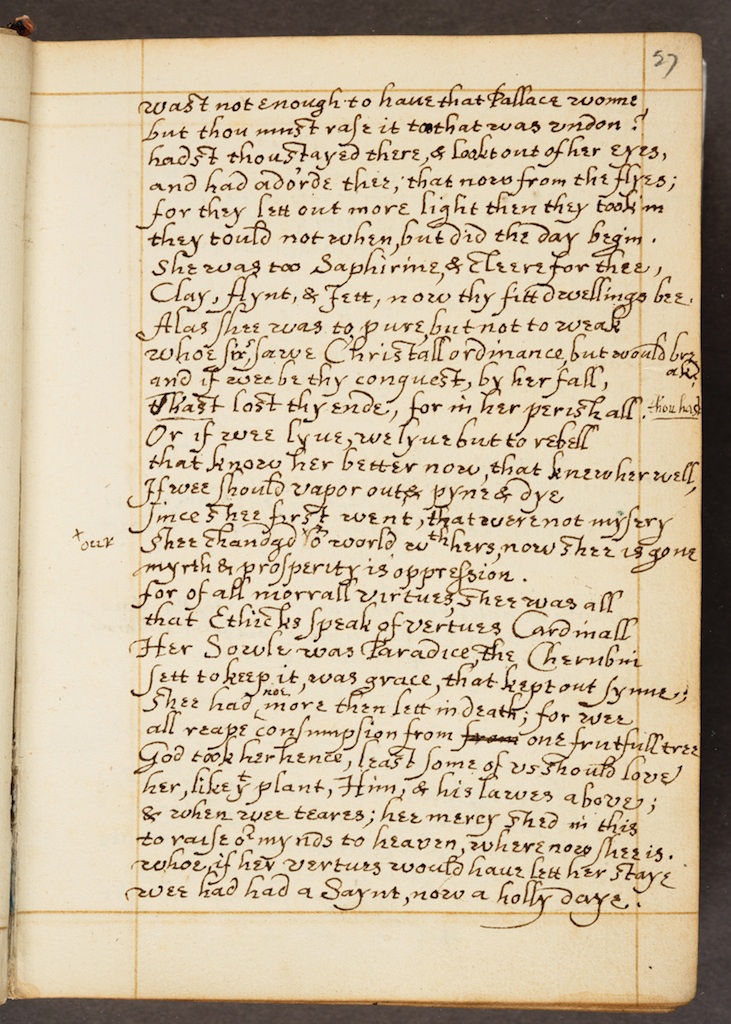 57
wast not enough to have that Pallace wonne
but thou must rase it too that was vndon?
hadst thou stayed there, & lookt out of her eyes,
and had ador'de thee, that now from thee flyes;
for they lett out more light then they took in
they tould not when, but did the day begin.
She was too Saphirine, & cleere for thee,
Clay, flynt, & Jett, now thy fitt dwellings bee.
Alas shee was to pure, but not to weak
whoe ere sawe Christall ordinance, but would bre
ak?
and if wee be thy conquest, by her fall,
Thast lost thy ende, for in her perish all. thou hast
Or if wee lyue, we lyue but to rebell
that know her better now, that knew her well,
If wee should vapor out, & pyne & dye
since shee first went, that were not mysery
+ our
shee chandgd yo world wth hers, now shee is gone
myrth & prosperity is oppression.
for of all morrall virtues, shee was all
that Ethicks speak of vertues Cardinall
Her Sowle was Paradice, the Cherubin
sett to keep it, was grace, that kept out synne;
shee had noe more then lett in death; for wee
all reape consumpsion from from one frutfull tree
God took her hence, least some of vs should love
her, like yt plant, Him, & his lawes above;
& when wee teares; hee mercy shed in this
to raise or mynds to heaven, where now shee is.
whoe, if her vertues would have lett her staye
wee had had a Saynt, now a holly daye.